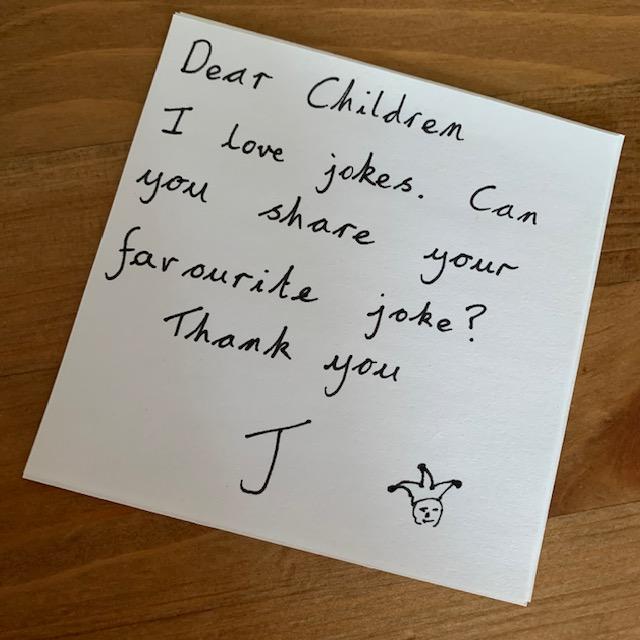 Dear Children
I love jokes. Can
you share your
favourite joke?
Thank you
J